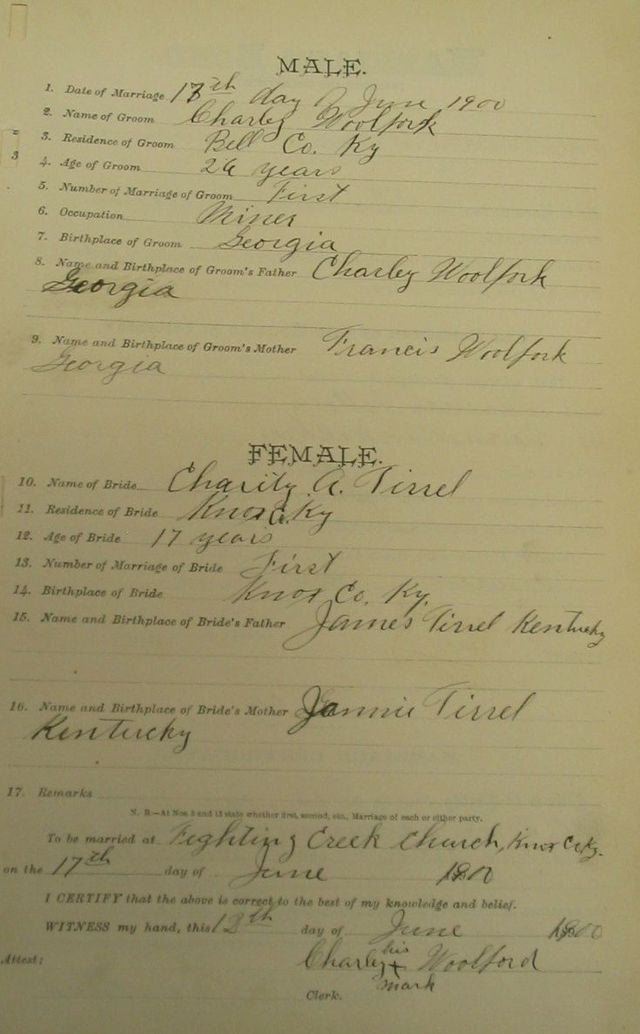 MALE.
1. Date of Marriage 17th day of June 1900
2. Name of Groom Charley Woolfork
3. Residence of Groom Bell Co. Ky
4. Age of Groom 26 years
5. Number of Marriage of Groom First
6. Occupation Miner
7. Birthplace of Groom Georgia
8. Name and Birthplace of Groom's Father Charley Woolfork
Georgia
9. Name and Birthplace of Groom's Mother Francis Woolfork
Georgia
FEMALE.
10. Name of Bride Charity A. Tirrel
11. Residence of Bride Knox Co. Ky
12. Age of Bride 17 years
13. Number of Marriage of Bride First
14. Birthplace of Bride Knox Co. Ky.
15. Name and Birthplace of Bride's Father James Tirrel Kentucky
16. Name and Birthplace of Bride's Mother Jennie Tirrel
Kentucky
17. Remarks
N. B.—At Nos 5 and 13 state whether first, second, etc., Marriage of each or either party.
To be married at Fighting Creek Church, Knox Co Ky.
on the 17th day of June 1900
I CERTIFY that the above is correct to the best of my knowledge and belief.
WITNESS my hand, this day of June 1900
Attest: Charley his x mark Woolford
Clerk.